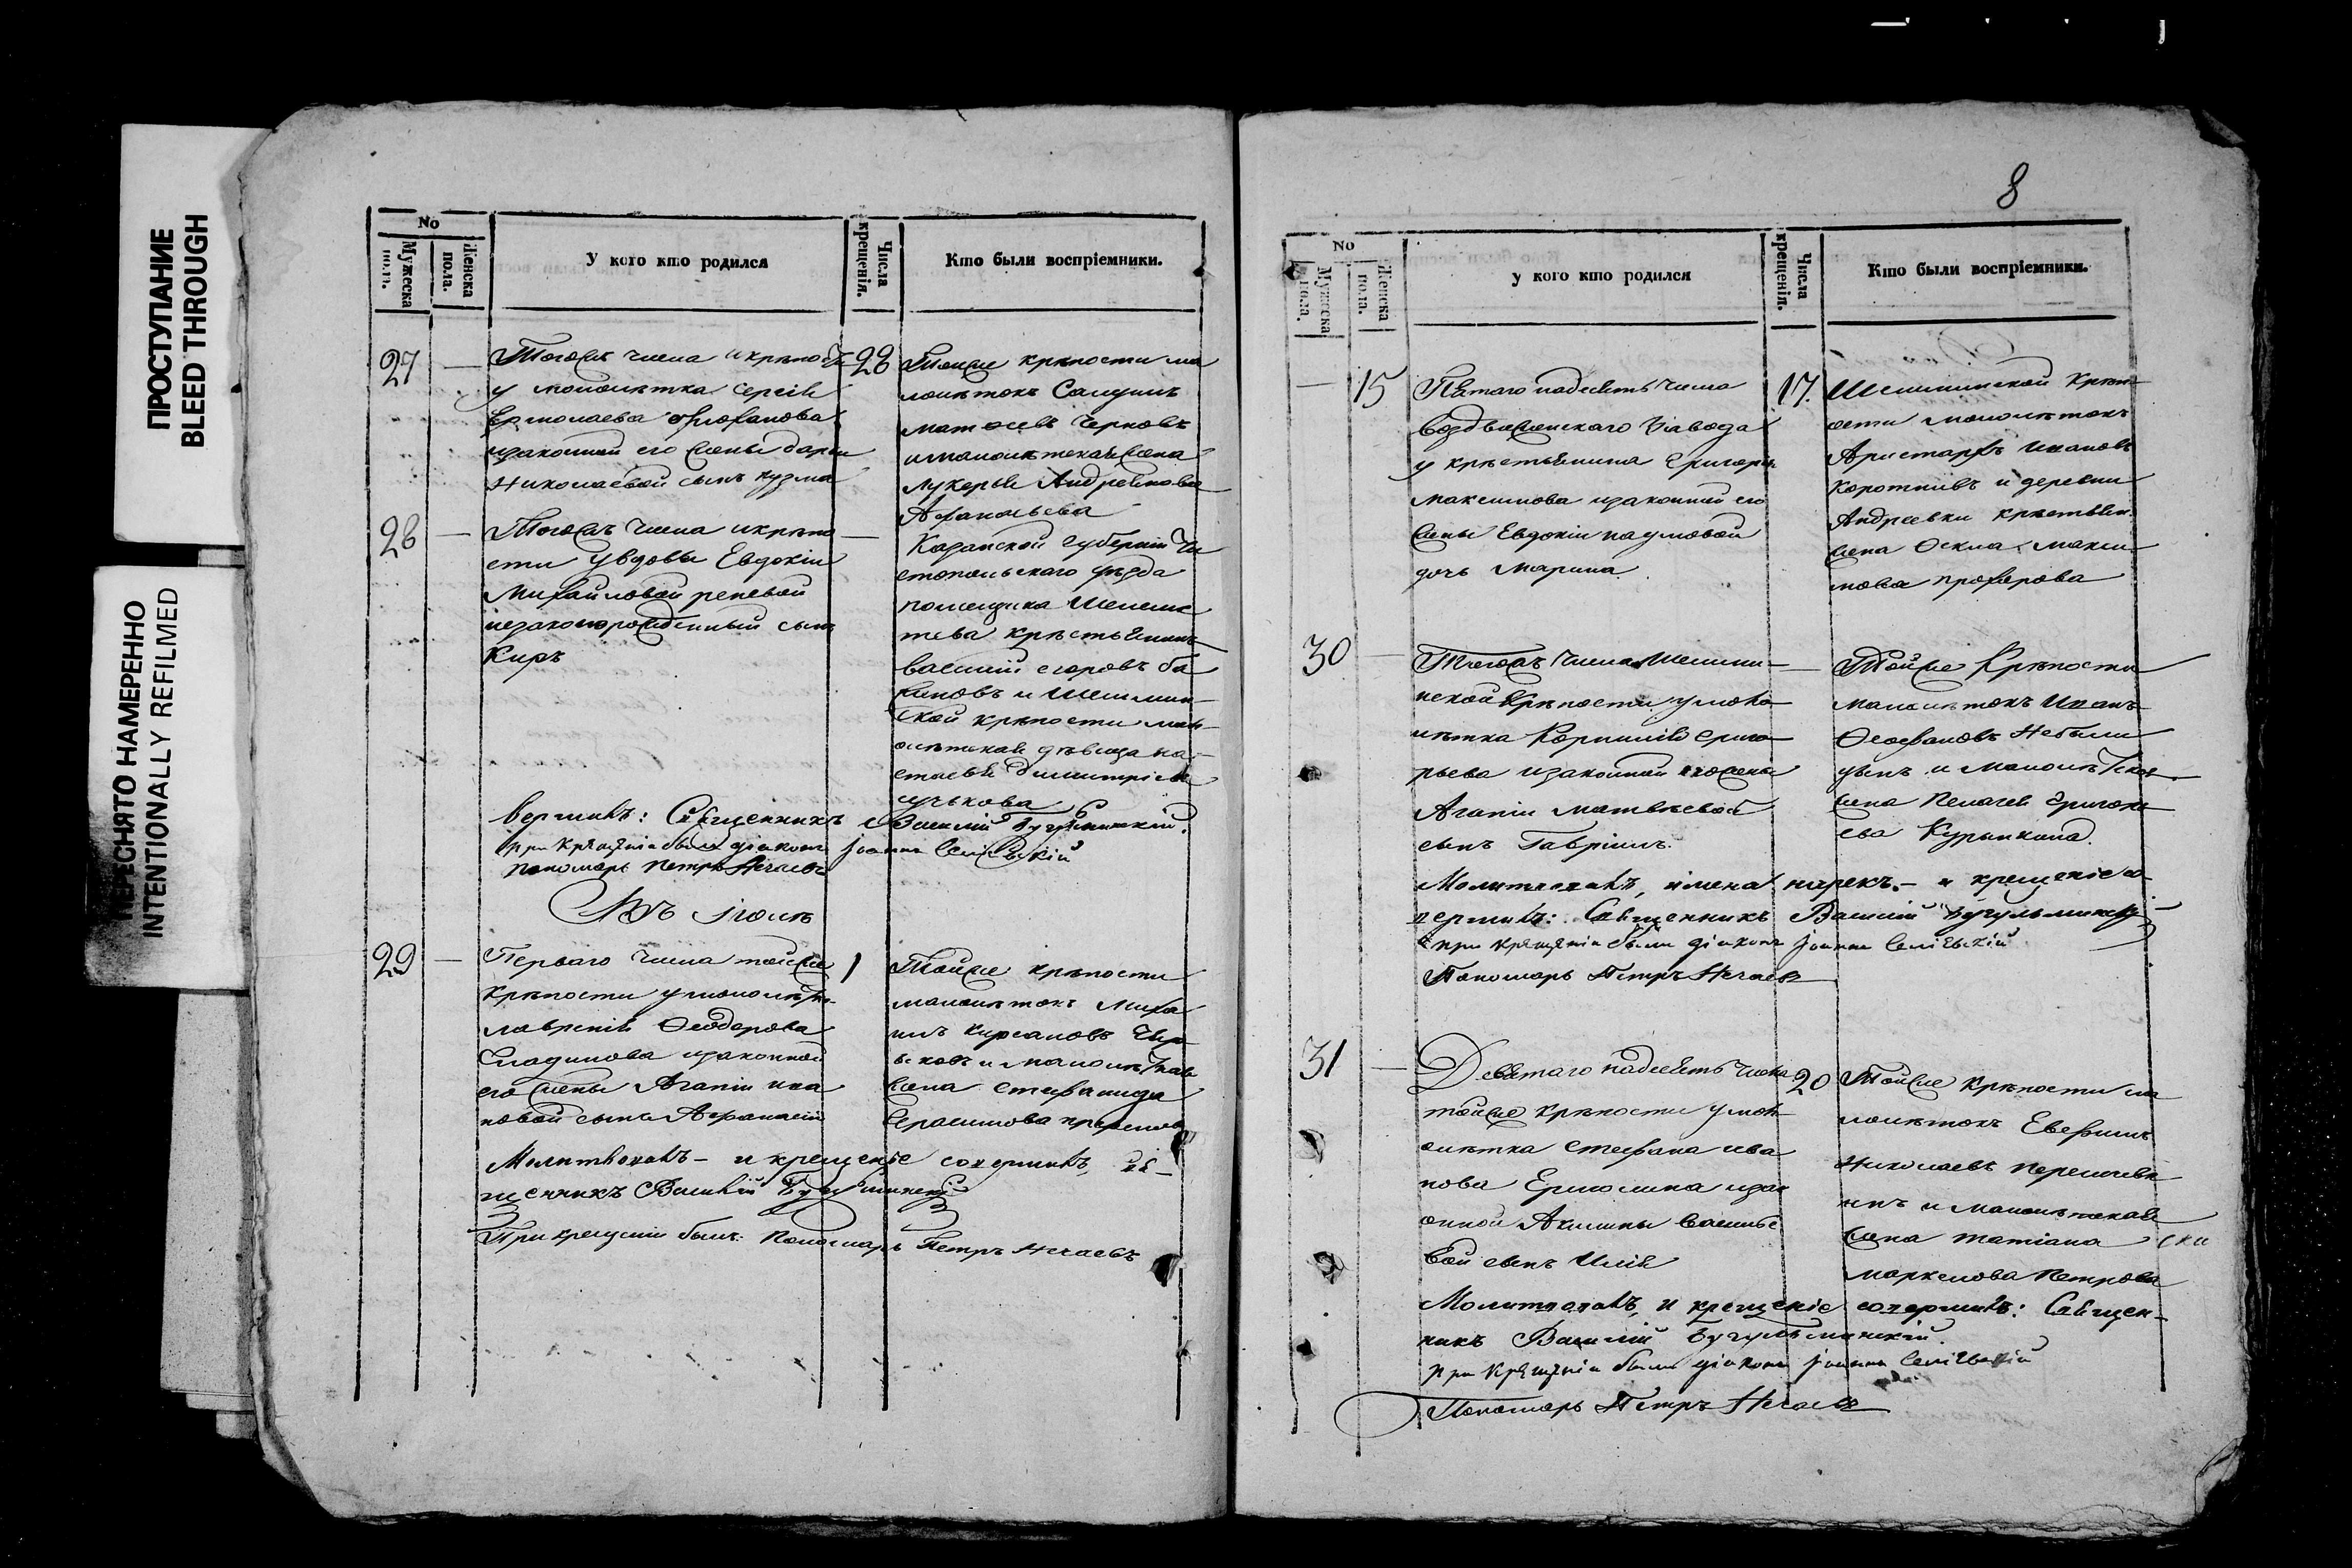 ПРОСТУПАНИЕ
BLEED THROUGH
ПЕРЕСНЯТО НАМЕРЕННО
INTENTIONALLY REFILMED
No
Мужеска пола.
Женска пола.
У кого кто родился
Числа крещенія.
Кто были воспріемники.
27
—
Тогожъ числа и крѣпос
у малолѣтка Сергѣя
Ермолаева
изаконной его жены Дарьи
Николаевой сынъ Кузма
28
Тойже крѣпости ма
лолѣтокъ
Матвеевъ Черновъ
ималолѣтокая жена
лукерья Андреянова
Афанасьева
28
—
Тогожъ числа икрѣпо
сти увдовы Евдокіи
Михайловой
незаконорожденный сынъ
Киръ
—
Казанской губерніи Чи
стопольскаго уѣзда
помещика Шереме
тева крѣстьянинъ
василій егоровъ ба
жановъ и Шешмин
ской крѣпости мал
олѣтокая дѣвица на
стасья Димитріева
сучькова
вершилъ: Священникъ Василій Бугульминскій.
при Крещеніи были діаконъ Іоаннъ
пономарь Петръ Нечаевъ
Въ іюлѣ
29
—
Перваго числа тойже
крѣпости умалолѣтка
лаврентія Ѳеодорова
изаконной
его жены Агапіи ива
новой сынъ Афанасій
1
Тойже крѣпости
малолѣтокъ Миха
илъ Кирсановъ
ималолѣткая
жена Стефанида
Герасимова
Молитвовалъ — и крещеніе совершилъ, Свя—
щенникъ Василій Бугульминскій
При крещеніи былъ: Пономарь Петръ Нечаевъ
8
No
Мужеска пола.
Женска пола.
у кого кто родился
Числа крещенія.
Кто были воспріемники.
—
15
Пятаго надесять числа
Воздвиженскаго Завода
у крѣстьянина Григорія
Максимова изаконной его
жены Евдокіи наумовой
дочь Марина
17.
Шешминской крѣп
ости малолѣтокъ
Аристархъ Ивановъ
Коротковъ и деревни
Андреевки крѣстьян.
жена Ѳекла Макси
мова прохорова
30
—
Тогожъ числа Шешми
нской Крѣпости умало
лѣтка Корнилія Григо
рьева изаконной его жены
Агапіи Матвѣевой
сынъ Гавріилъ.
—
Тойже Крѣпости
малолѣтокъ Иванъ
Ѳеофановъ Небыли
цынъ и малолѣткая
жена Пелагея Григорь
ева Курынкина.
Молитвовалъ, имена нарекъ. — и крещеніе со—
вершилъ: Священникъ Василій Бугульминскій
при крещеніи были діаконъ Іоаннъ
Пономарь Петръ Нечаевъ
31
—
Девятаго надесять числа
тойже крѣпости умал
олѣтка Стефана ива
нова Ермолина изак
онной Акилины Василье
вой сынъ Илія
20
Тойже крѣпости ма
лолѣтокъ Евфимъ
Николаевъ
нъ и малолѣтокая
жена татіана
маркелова Петрова
Молитвовалъ, и крещеніе совершилъ: Священ—
никъ Василій Бугульминскій.
При Крещеніи были діаконъ Іоаннъ
Пономарь Петръ Нечаевъ